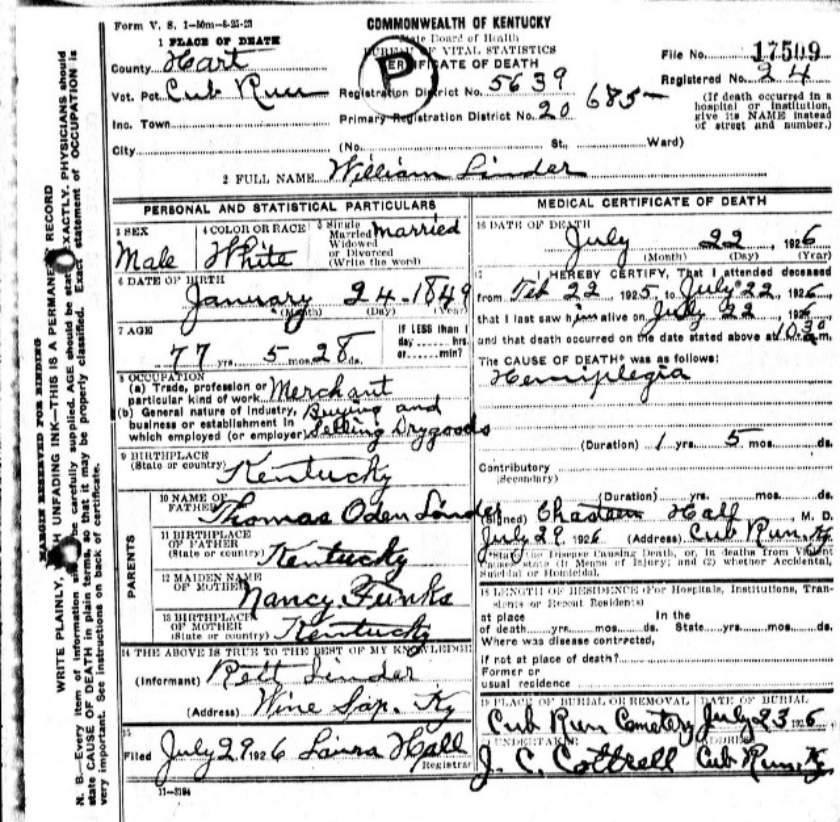 Form V. S. 1-50m-8-25-23
COMMONWEALTH OF KENTUCKY
State Board of Health
BUREAU OF VITAL STATISTICS
CERTIFICATE OF DEATH
P
File No. 17509
Registered No. 24
(If death occurred in a
hospital or institution,
give its NAME instead
of street and number.)
1 PLACE OF DEATH
County Hart
Vot. Pct. Cub Run
Inc. Town
City
Registration District No. 5639
Primary Registration District No. 20
685-
(No. St., Ward)
2 FULL NAME William Linder
PERSONAL AND STATISTICAL PARTICULARS
3 SEX
Male
4 COLOR OR RACE
White
5 Single
Married
Widowed
or Divorced
(Write the word)
married
6 DATE OF BIRTH
January 24-1849
(Month) (Day) (Year)
7 AGE
77 yrs. 5 mos. 28 ds.
If LESS than 1
day hrs.
or min?
8 OCCUPATION
(a) Trade, profession or
particular kind of work Merchant
(b) General nature of industry,
business or establishment in
which employed (or employer)
Buying and
Selling Drygoods
9 BIRTHPLACE
(State or country) Kentucky
PARENTS
10 NAME OF
FATHER Thomas Oden Linder
11 BIRTHPLACE
OF FATHER
(State or country) Kentucky
12 MAIDEN NAME
OF MOTHER Nancy Funks
13 BIRTHPLACE
OF MOTHER
(State or country) Kentucky
14 THE ABOVE IS TRUE TO THE BEST OF MY KNOWLEDGE
(Informant) Rett Linder
(Address) Wine Sap. Ky
15
Filed July 29 1926 Laura Hall
Registrar
11-3184
MEDICAL CERTIFICATE OF DEATH
16 DATE OF DEATH
July 22, 1926
(Month) (Day) (Year)
17 I HEREBY CERTIFY, That I attended deceased
from Feb 22, 1925, to July 22, 1926,
that I last saw him alive on July 22, 192
and that death occurred on the date stated above at 10:30 m.
The CAUSE OF DEATH* was as follows:
Hemiplegia
(Duration) 1 yrs. 5 mos. ds.
Contributory
(Secondary)
(Duration) yrs. mos. ds.
(Signed) Chasteen Hall, M. D.
July 29, 1926 (Address) Cub Run, Ky
*State the Disease Causing Death, or, in deaths from Violent
Causes, state (1) Means of Injury; and (2) whether Accidental,
Suicidal or Homicidal.
18 LENGTH OF RESIDENCE (For Hospitals, Institutions, Tran-
sients or Recent Residents)
at place In the
of death yrs. mos. ds. State yrs. mos. ds.
Where was disease contracted,
if not at place of death?
Former or
usual residence
19 PLACE OF BURIAL OR REMOVAL
Cub Run Cemetery
DATE OF BURIAL
July 23 1926
20 UNDERTAKER
J. C. Cottrell
ADDRESS
Cub Run, Ky
MARGIN RESERVED FOR BINDING
WRITE PLAINLY, WITH UNFADING INK—THIS IS A PERMANENT RECORD
N. B.—Every item of information should be carefully supplied. AGE should be stated EXACTLY. PHYSICIANS should
state CAUSE OF DEATH in plain terms, so that it may be properly classified. Exact statement of OCCUPATION is
very important. See instructions on back of certificate.